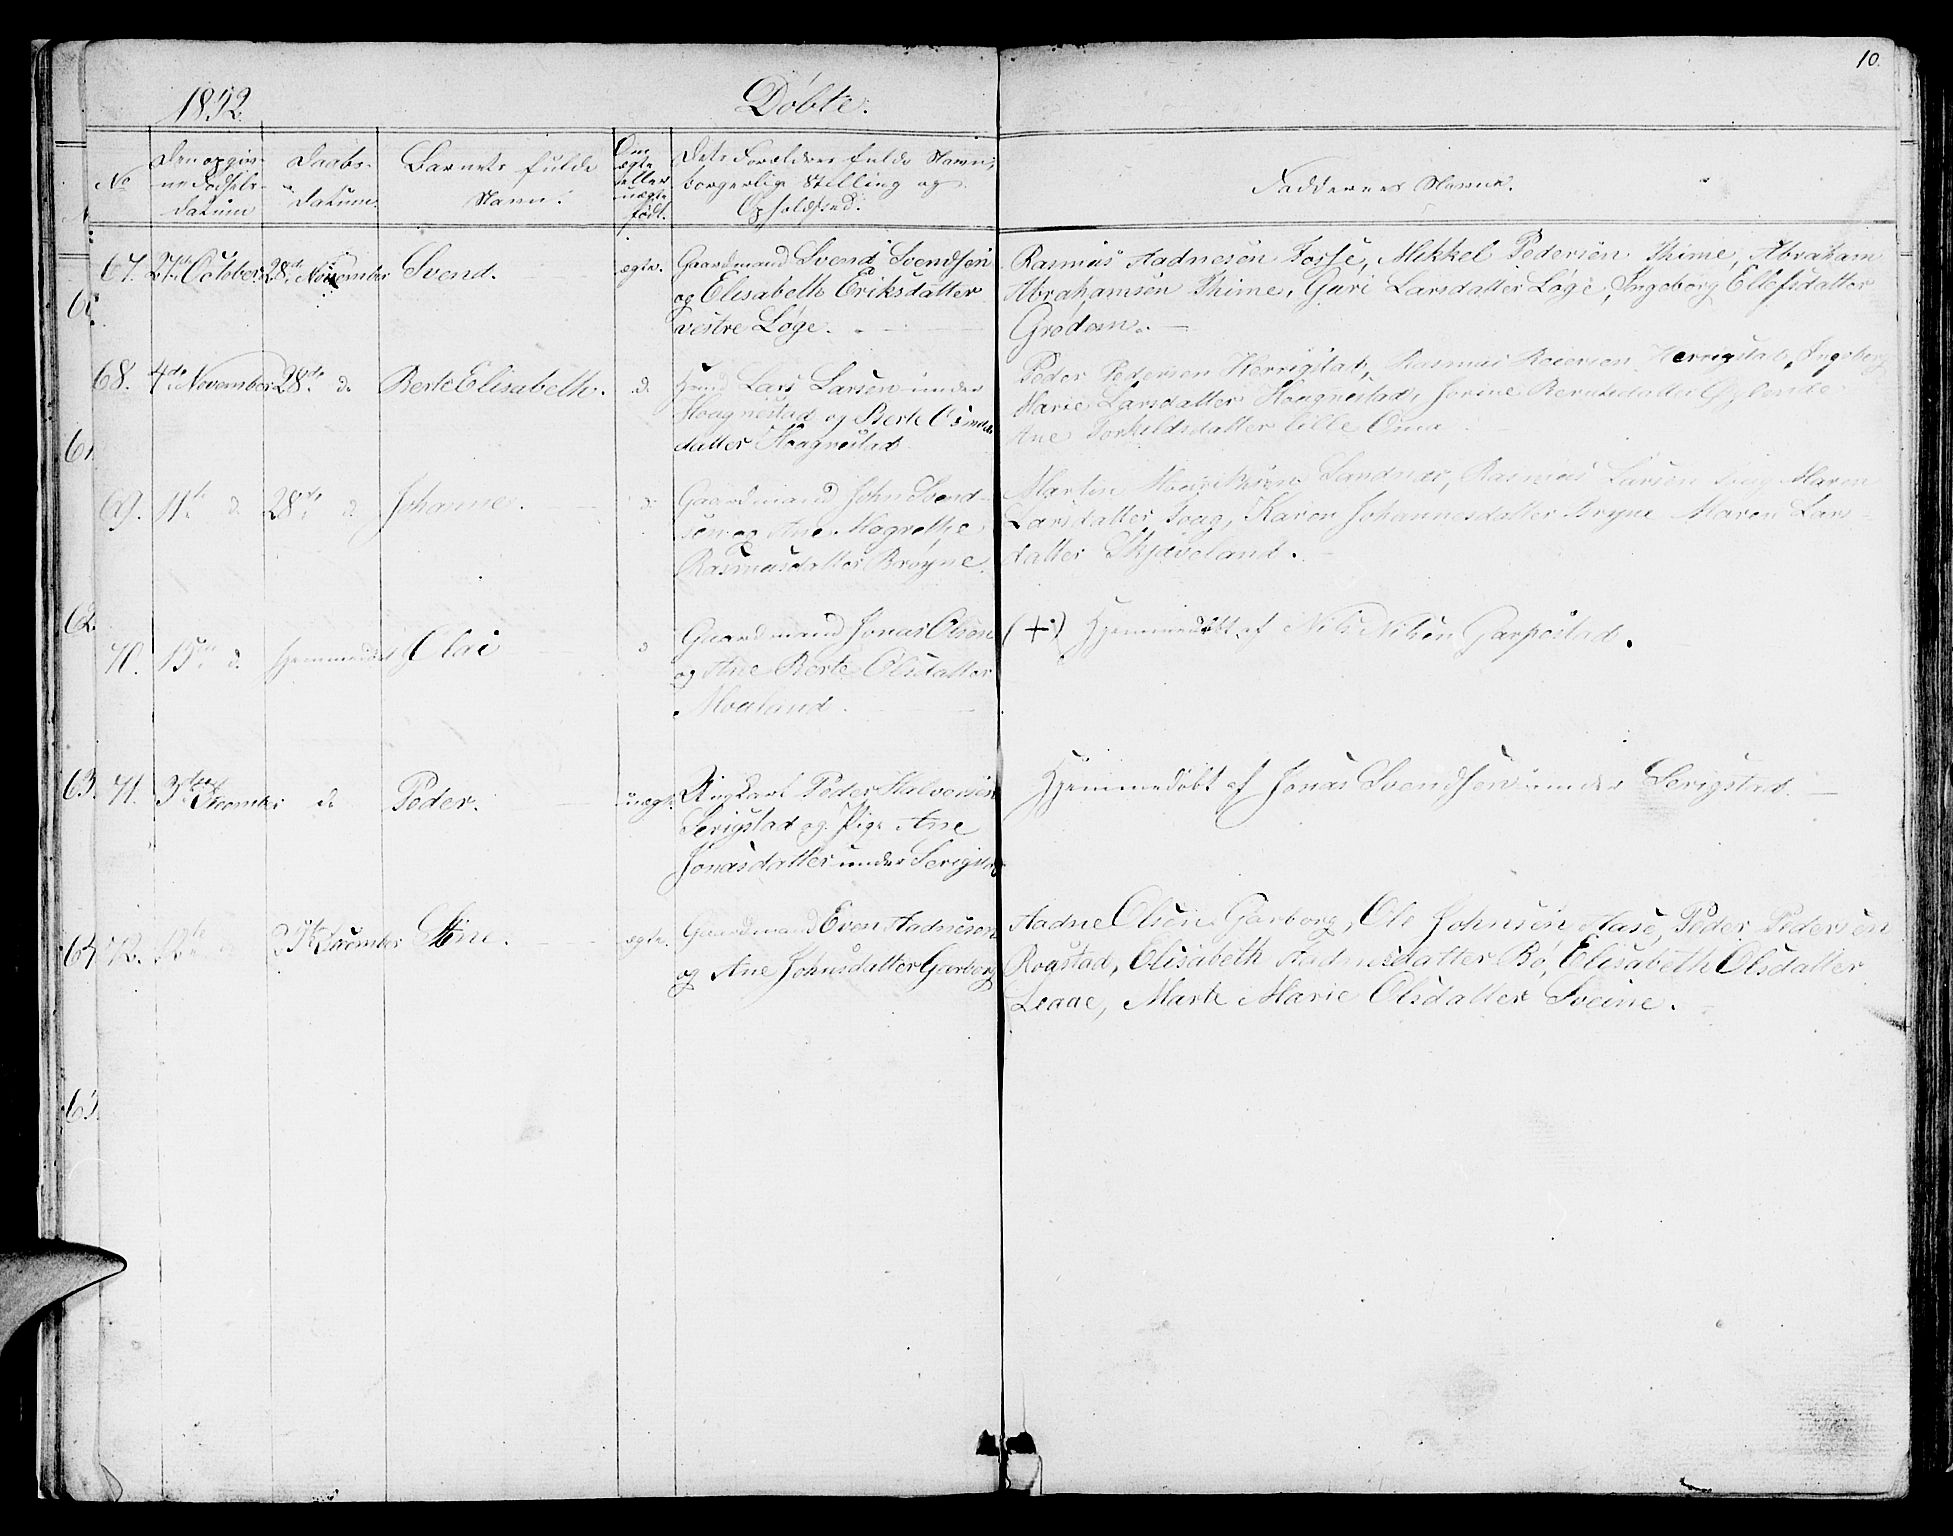 10.
1852.
Døbte.
No
Den opgiv-
ne Fødsels-
datum
Daabs-
datum.
Barnets fulde
Navn.
Om
ægte
eller
uægte
født.
Dets Forældres fulde Navn,
borgerlige Stilling og
Opholdsted.
Faddernes Navne.
67. 27de October 28de November Svend. ægte. Gaardmand Svend Svendsen
og Elisabeth Eriksdatter
vestre Løge.
Rasmus Aadnesen Fosse, Mikkel Pedersen Thime, Abraham
Abrahamsen Thime, Guri Larsdatter Løge, Ingeborg Ellefsdatter
Grødem.
68. 4de November 28de d. Berte Elisabeth. d. Lars Larsen under
Haagnestad og Berte
datter Haagnestad
Peder Pedersen Herrigstad, Rasmus Herrigstad, Ingeborg
Marie Larsdatter Haagnestad, Berntsdatter
Ane Torkildsdatter lille Oma
69. 11te d. 28de d. Johanne. d. Gaardmand John Svend-
sen og Ane Magrethe
Rasmusdatter Brøyne.
Martin Sandnæs, Rasmus Larsen Maren
Larsdatter Karen Johannesdatter Bryne Maren Lars-
datter Skjæveland.
70. 15de d. Hjemmedøbt Olai d. Gaardmand Jonas Olsen
og Ane Berte Olsdatter
Moeland.
(+) Hjemmedøbt af Nils Nilsen Garpestad.
71. 3die December d. Peder. uægte. Ungkarl Peder Halvorsen
Serigstad og Pige Ane
Jonasdatter under Serigstad
Hjemmedøbt af Jonas Svendsen under Serigstad.
72. December Ane. ægte. Gaardmand Even Aadnesen
og Ane Johnsdatter Garborg
Aadne Olsen Garborg, Ole Johnsen Aase, Peder Pedersen
Roastad, Elisabeth Aadnesdatter Bø, Elisabeth Olsdatter
Laaae, Marte Marie Olsdatter Sveine.
61.
62.
63.